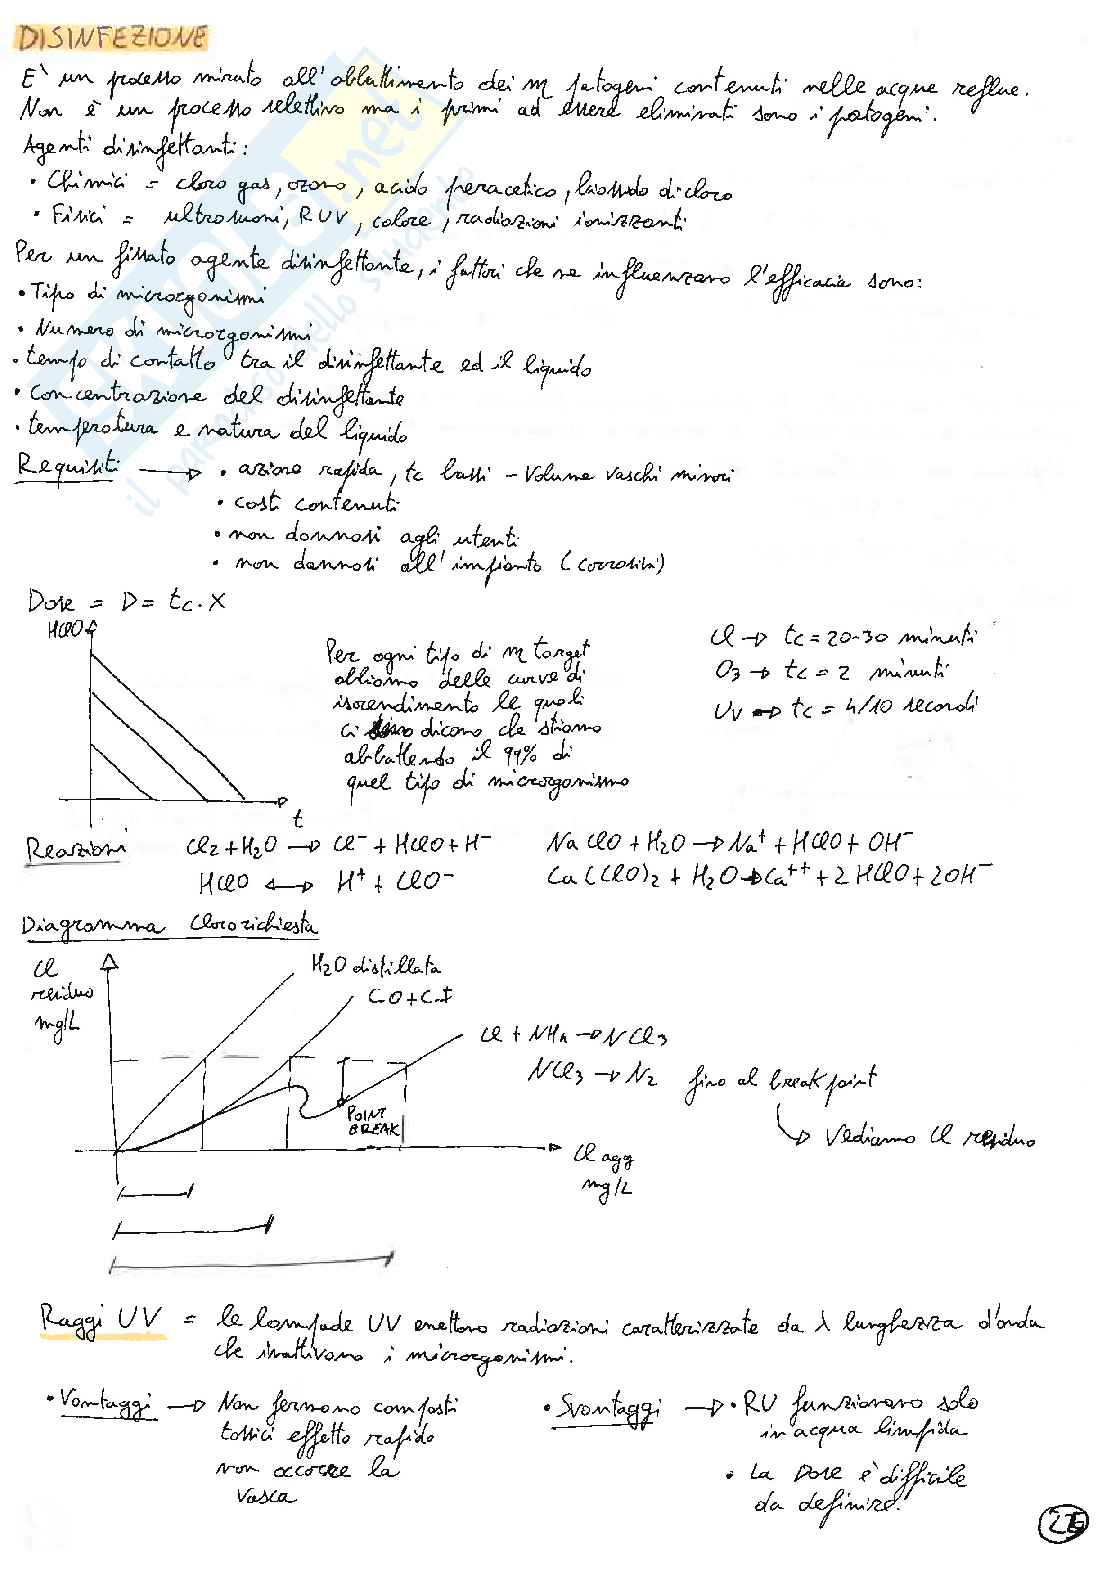 DISINFEZIONE
E' un processo mirato all'abbattimento dei m patogeni contenuti nelle acque reflue.
Non è un processo selettivo ma i primi ad essere eliminati sono i patogeni.
Agenti disinfettanti:
• Chimici = cloro gas, ozono, acido peracetico, biossido di cloro
• Fisici = ultrasuoni, RUV, calore, radiazioni ionizzanti
Per un fissato agente disinfettante, i fattori che ne influenzano l'efficacia sono:
• Tipo di microrganismi
• Numero di microrganismi
• tempo di contatto tra il disinfettante ed il liquido
• Concentrazione del disinfettante
• temperatura e natura del liquido
Requisiti → • azione rapida, tc bassi - Volume vaschi minori
• costi contenuti
• non dannosi agli utenti
• non dannosi all'impianto (corrosivi)
Dose = D = tc · X
HClO
t
Per ogni tipo di m target
abbiamo delle curve di
isorendimento le quali
ci dicono che stiamo
abbattendo il 99% di
quel tipo di microrganismo
Cl → tc = 20-30 minuti
O3 → tc = 2 minuti
UV → tc = 4/10 secondi
Reazioni Cl2 + H2O → Cl⁻ + HClO + H⁻ NaClO + H2O → Na⁺ + HClO + OH⁻
HClO ↔ H⁺ + ClO⁻ Ca(ClO)2 + H2O → Ca⁺⁺ + 2HClO + 2OH⁻
Diagramma Clororichiesta
Cl
residuo
mg/L
H2O distillata
C-O + C-I
Cl + NH4 → NCl3
NCl3 → N2 fino al breakpoint
↳ Vediamo Cl residuo
POINT
BREAK
Cl agg
mg/L
Raggi UV = le lampade UV emettono radiazioni caratterizzate da λ lunghezza d'onda
che inattivano i microrganismi.
• Vantaggi → Non formano composti
tossici effetto rapido
non occorre la
vasca
• Svantaggi → • RU funzionano solo
in acqua limpida
• La Dose è difficile
da definire.